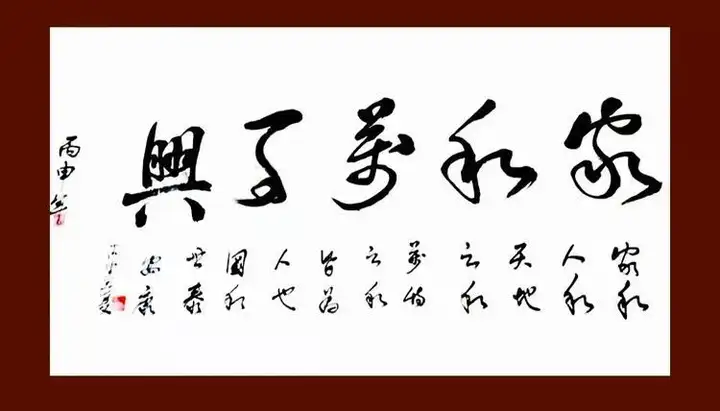 家和萬事興
家和
人和
天地
之和
萬物
之和
皆為
人也
國和
世泰
安康
丙申